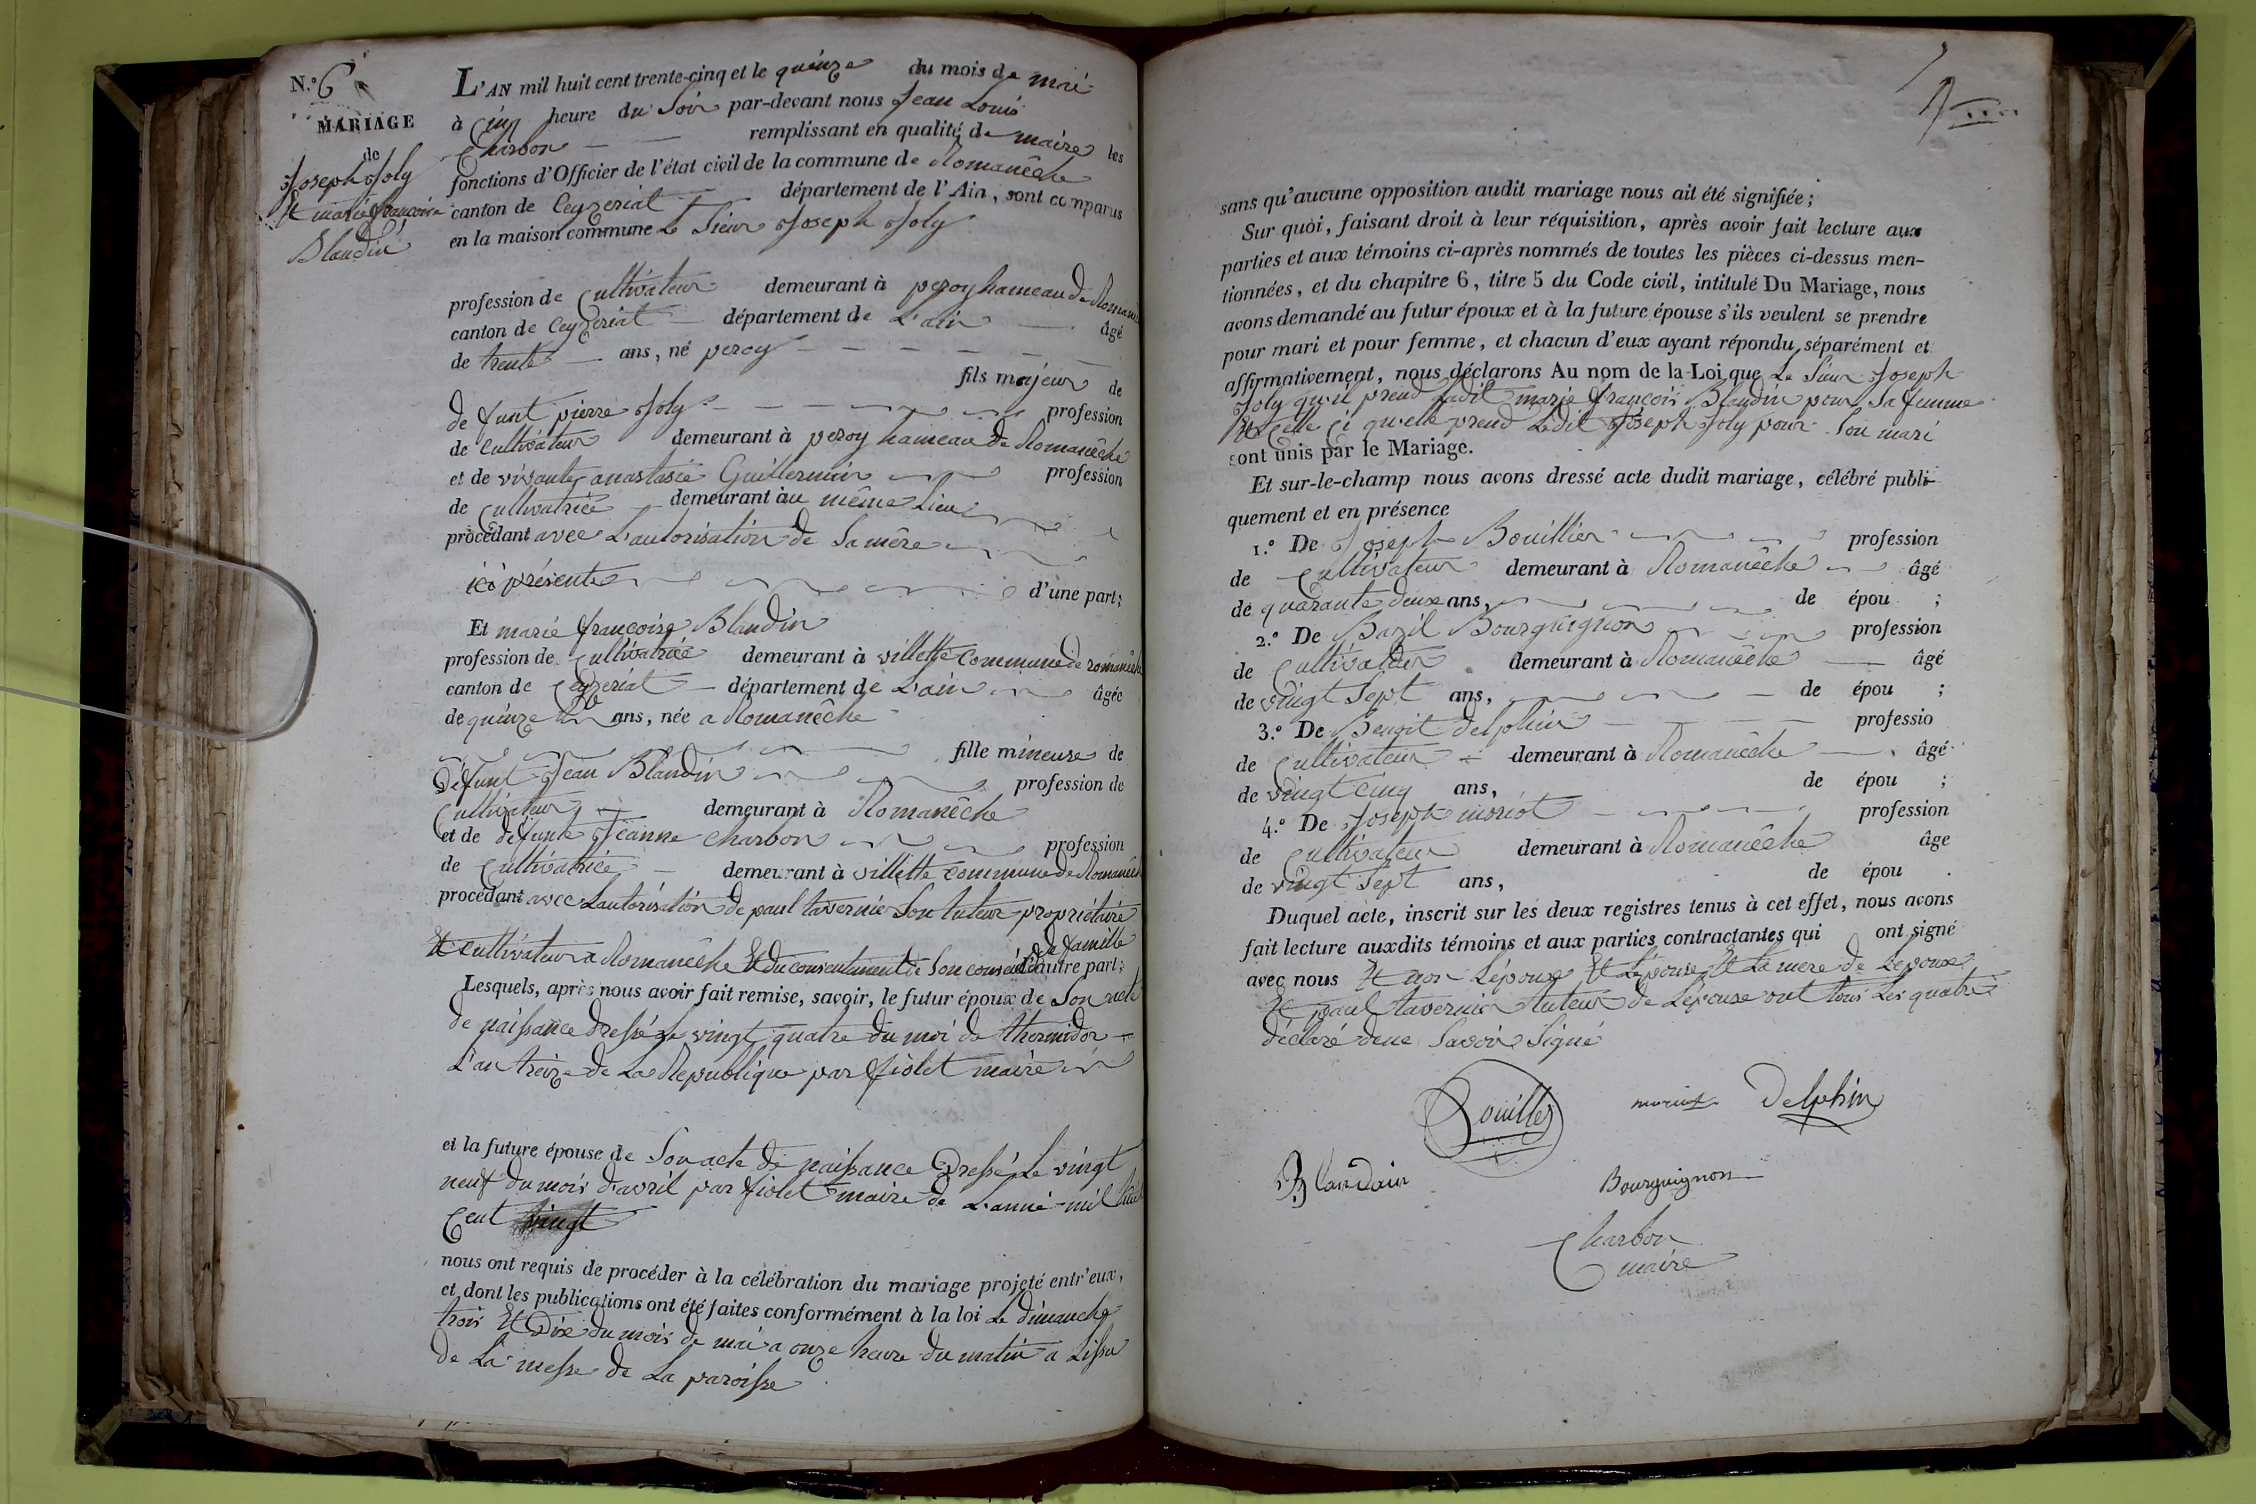 N.º 6
MARIAGE
de
Joseph Joly
Et marie françoise
Blandin
L'AN mil huit cent trente-cinq et le quinze du mois de mai
à Cinq heure du Soir par-devant nous Jean Louis
Charbon remplissant en qualité de maire les
fonctions d'Officier de l'état civil de la commune de Romanêche
canton de Ceyzeriat département de l'Ain, sont comparus
en la maison commune Le Sieur Joseph Joly
profession de Cultivateur demeurant à peroy hameau de Roman
canton de Ceyzeriat département de L'ain âgé
de trente ans, né peroy
fils majeur de
de funt pierre Joly profession
de Cultivateur demeurant à peroy hameau de Romanêche
et de vivante anastasie Guillermin profession
de Cultivatrice demeurant au même Lieu
procédant avec L'autorisation de Sa mère
ici présente d'une part;
Et marie françoise Blandin
profession de Cultivatrice demeurant à villette Commune de romanêche
canton de Ceyzeriat département de L'ain âgée
de quinze ans, née a Romanêche
fille mineure de
Défunt Jean Blandin profession de
Cultivateur demeurant à Romanêche
et de défunte Jeanne Charbon profession
de Cultivatrice demeurant à villette Commune de Romanêch
procédant avec Lautorisation de paul tavernié Son tuteur propriétaire
Et Cultivateur a Romanêche Et du consentement de Son conseil de famille
d'autre part;
Lesquels, après nous avoir fait remise, savoir, le futur époux de Son acte
de naissance dressé Le vingt quatre du moi de thermidor
L'an treize de La Republique par fiolet maire
et la future épouse de Son acte de naissance Dressé Le vingt
neuf du mois d'avril par fiolet maire de L'année mil huit
Cent vingt
nous ont requis de procéder à la célébration du mariage projeté entr'eux,
et dont les publications ont été faites conformément à la loi Le dimanche
trois Et Dix du mois de mai a onze heure du matin a Lissu
de La messe de La paroisse
sans qu'aucune opposition audit mariage nous ait été signifiée;
Sur quoi, faisant droit à leur réquisition, après avoir fait lecture aux
parties et aux témoins ci-après nommés de toutes les pièces ci-dessus men-
tionnées, et du chapitre 6, titre 5 du Code civil, intitulé Du Mariage, nous
avons demandé au futur époux et à la future épouse s'ils veulent se prendre
pour mari et pour femme, et chacun d'eux ayant répondu séparément et
affirmativement, nous déclarons Au nom de la Loi que Le Sieur Joseph
Joly qu'il prend Ladit marie françois Blandin pour Sa femme
Et Celle Ci qu'elle prend Ledit Joseph Joly pour Son mari
sont unis par le Mariage.
Et sur-le-champ nous avons dressé acte dudit mariage, célébré publi-
quement et en présence
1.º De Joseph Bouillier profession
de Cultivateur demeurant à Romanêche âgé
de quarante deux ans, de épou ;
2.º De Bazil Bourguignon profession
de Cultivateur demeurant à Romanêche âgé
de vingt Sept ans, de épou ;
3.º De Benoit Delphin professio
de Cultivateur demeurant à Romanêche âgé
de vingt Cinq ans, de épou ;
4.º De Joseph moriot profession
de Cultivateur demeurant à Romanêche âge
de vingt Sept ans, de épou .
Duquel acte, inscrit sur les deux registres tenus à cet effet, nous avons
fait lecture auxdits témoins et aux parties contractantes qui ont signé
avec nous Et non Lépoux Et Lépouse Et La mere de Lepoux
Et paul tavernier tuteur de Lépouse ont tous Les quatre
déclaré dene Savoir Signé
Bouiller moriot Delphin
Blandain Bourguignon
Charbon
maire